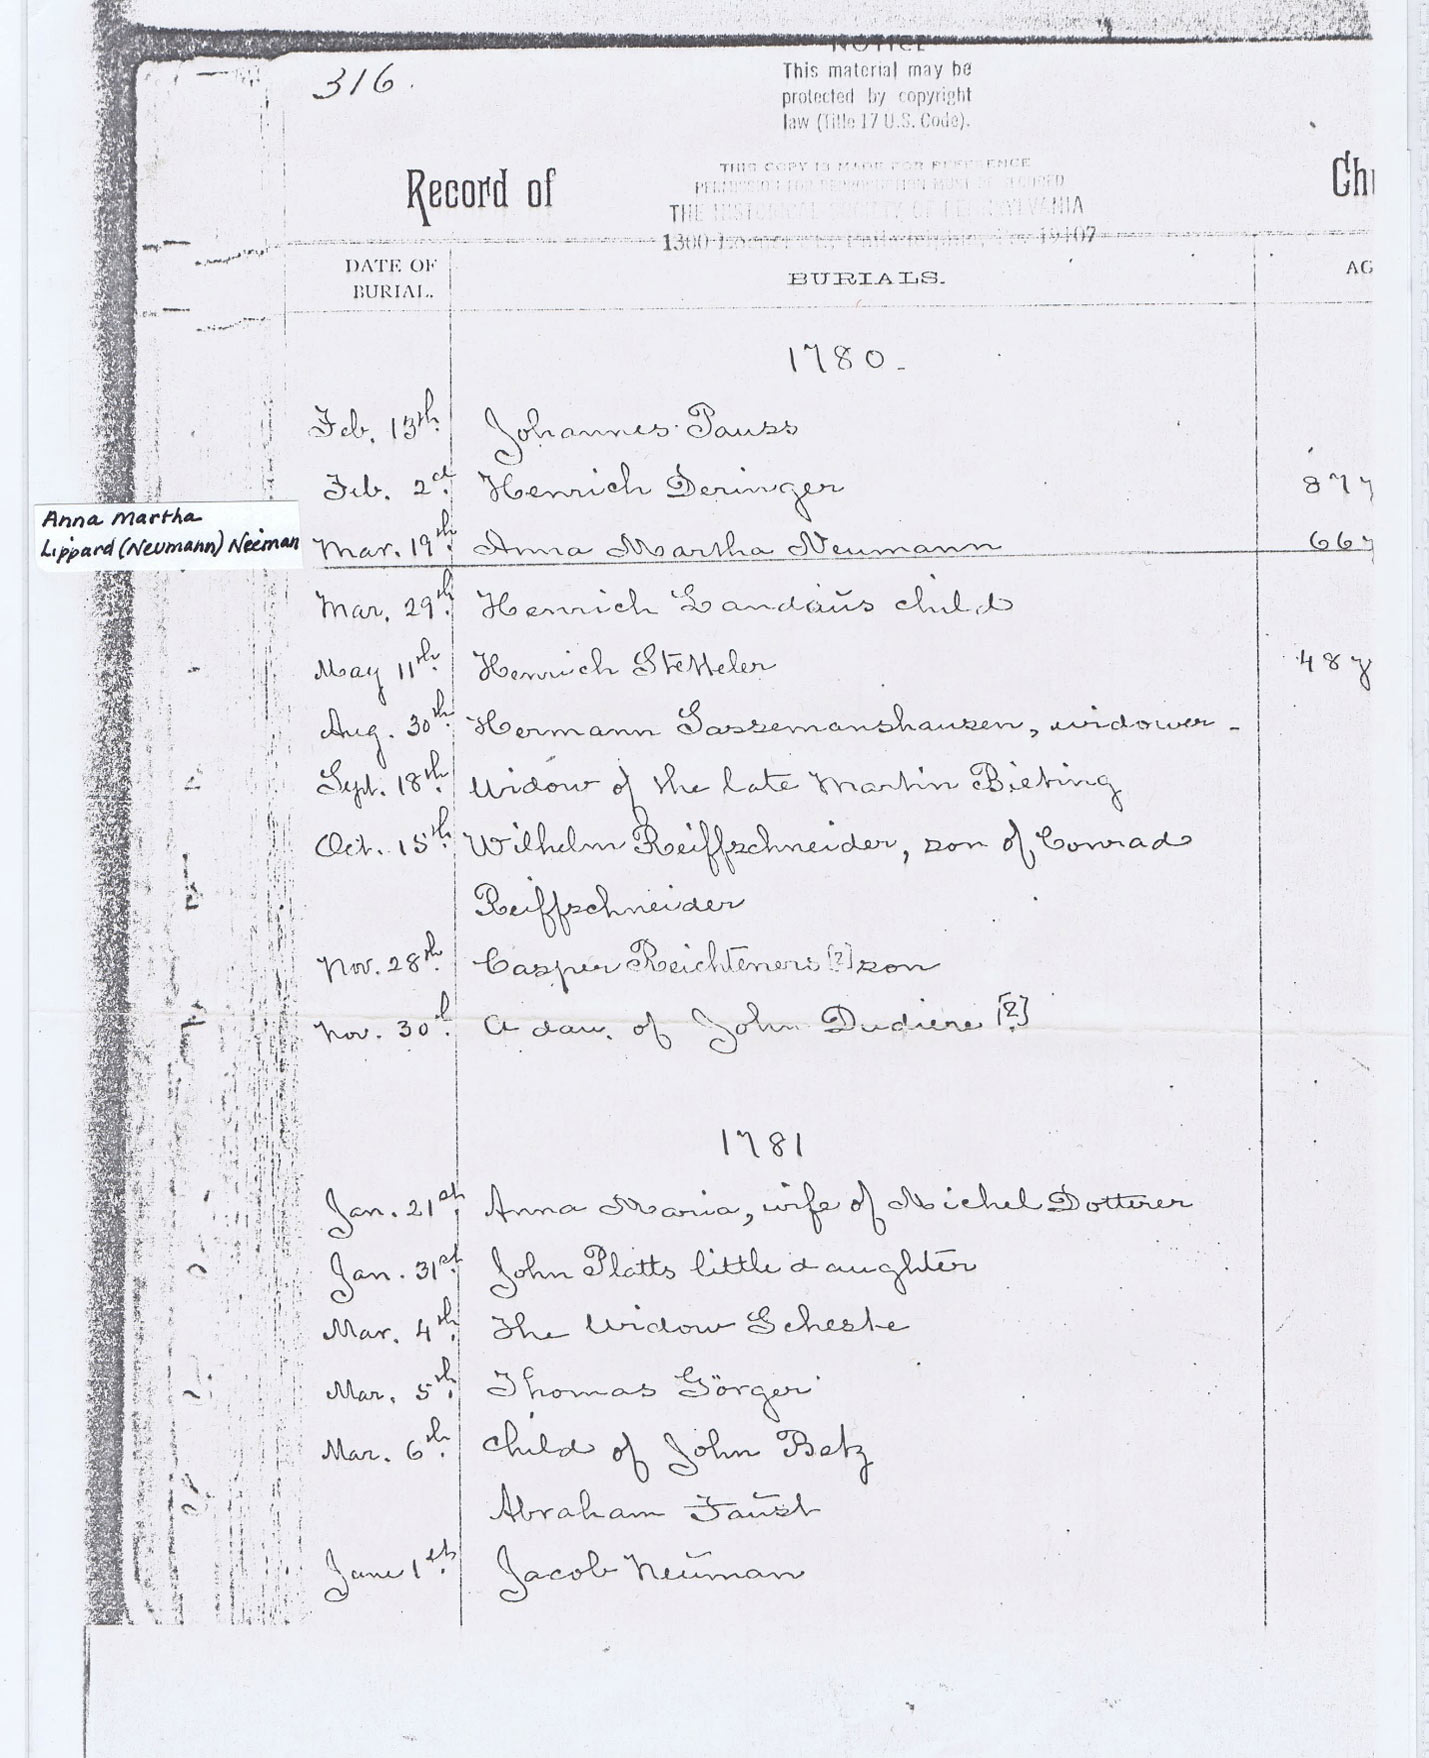 316.
NOTICE
This material may be
protected by copyright
law (Title 17 U.S. Code).
THIS COPY IS MADE FOR REFERENCE
PERMISSION FOR REPRODUCTION MUST BE SECURED
THE HISTORICAL SOCIETY OF PENNSYLVANIA
1300 19107
Record of Chr
DATE OF
BURIAL. BURIALS. AG
1780.
Feb. 13th. Johannes Pauss
Feb. 2d. Henrich Deringer 87 y
Anna Martha
Lippard (Neumann) Neiman
Mar. 19th. Anna Martha Neumann 66 y
Mar. 29th. Henrich Landaŭs child
May 11th. Henrich Stetteler 48 y
Aug. 30th. Hermann Sassemanshausen, widower.
Sept. 18th. Widow of the late Martin Bieting
Oct. 15th. Wilhelm Reiffschneider, son of Conrad
Reiffschneider
Nov. 28th. Casper Reichteners [?] son
Nov. 30th. A dau. of John Dudiere [?]
1781
Jan. 21st. Anna Maria, wife of Michel Dotterer
Jan. 31st. John Platts little daughter
Mar. 4th. The Widow Scheste
Mar. 5th. Thomas Görger
Mar. 6th. Child of John Betz
Abraham Faŭst
June 1st. Jacob Neŭman